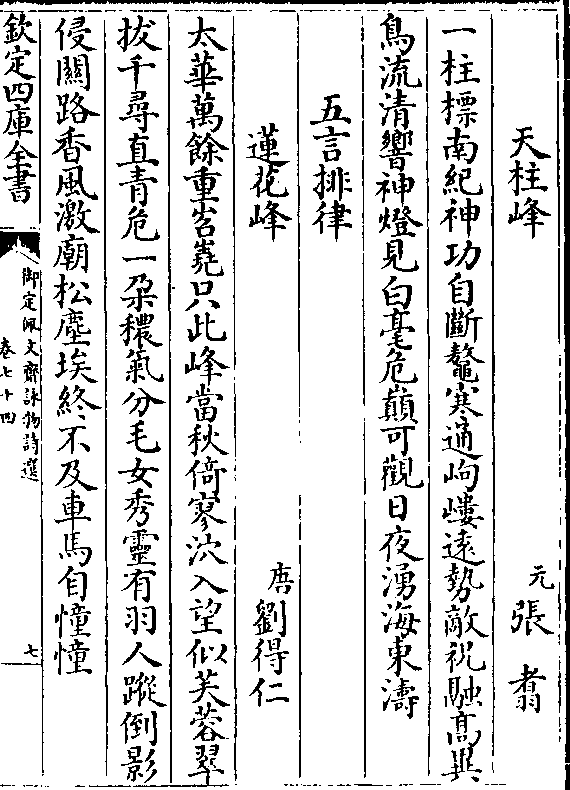 天柱峰
元張翥
一柱標南紀神功自斷鼇寒通岣嶁遠勢敵祝融高異
鳥流清響神燈見白毫危巔可觀日夜湧海東濤
五言排律
蓮花峰
唐劉得仁
太華萬餘重岧嶤只此峰當秋倚寥泬入望似芙蓉翠
拔千尋直青危一朶穠氣分毛女秀靈有羽人蹤倒影
侵關路香風激廟松塵埃終不及車馬自憧憧
欽定四庫全書
御定佩文齋詠物詩選
卷七十四
七